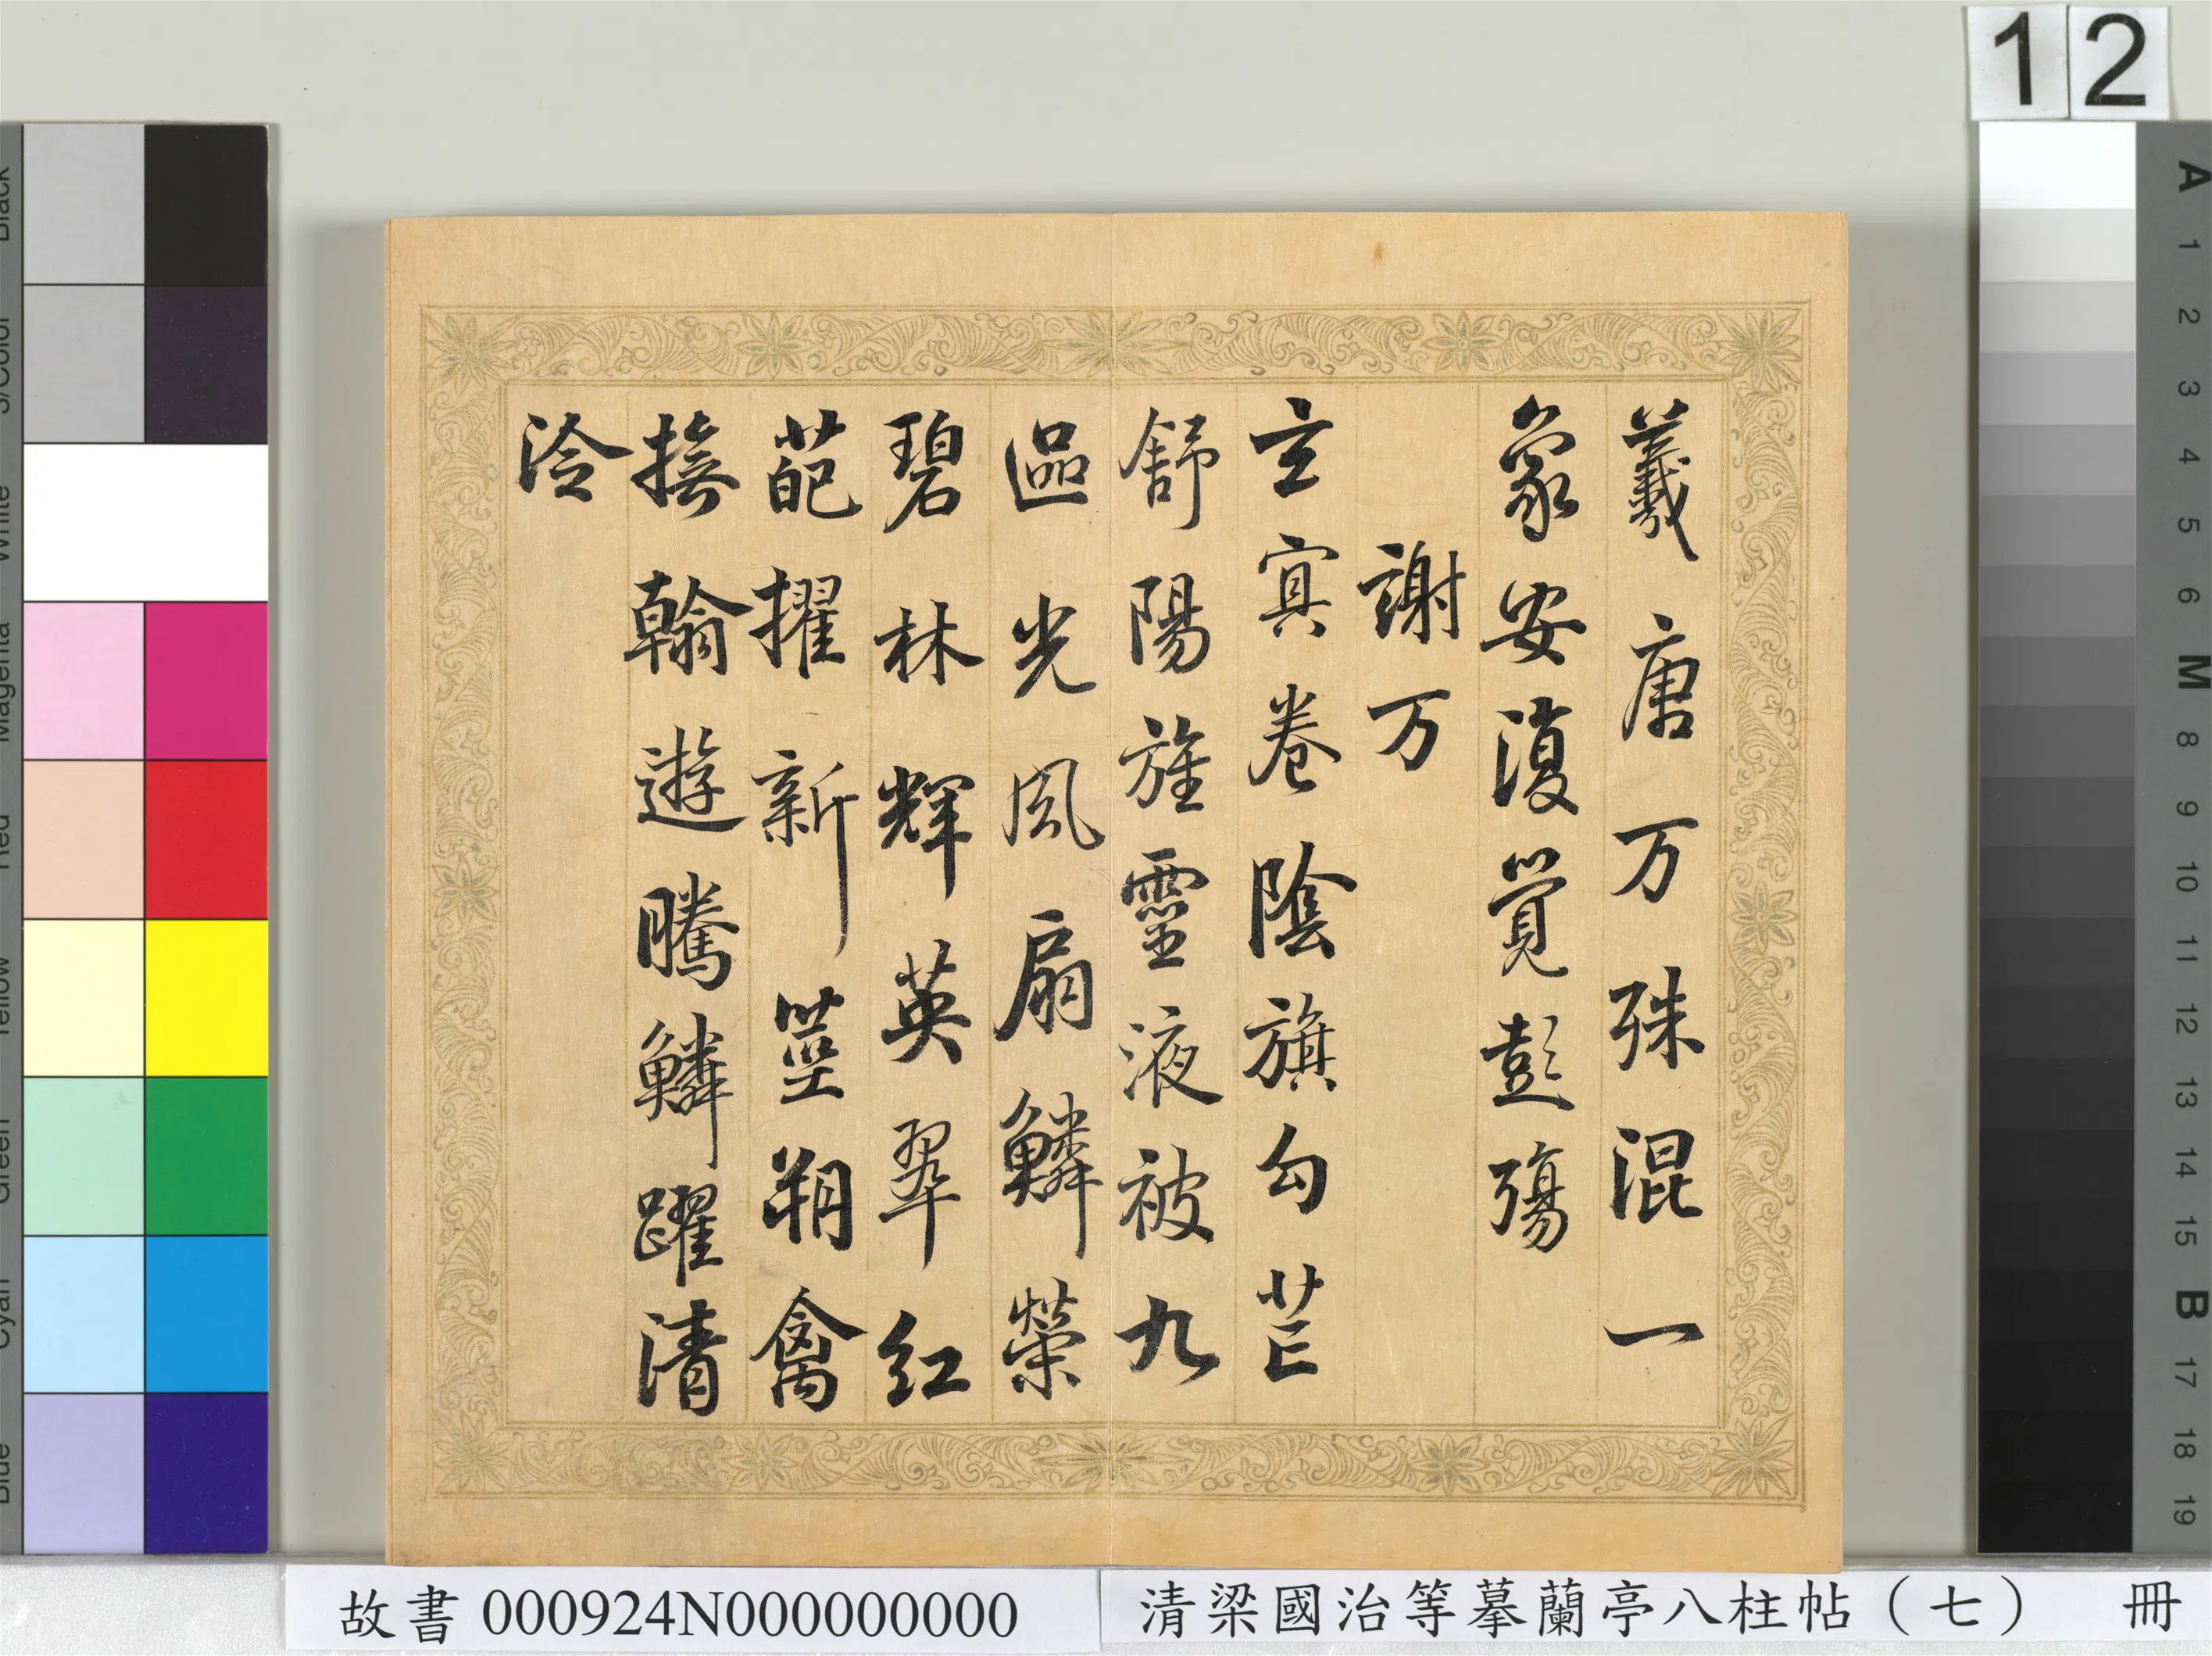 12
羲唐万殊混一
象安復覺彭殤
謝万
玄冥卷陰旗勾芒
舒陽旌靈液被九
區光風扇鱗榮
碧林輝英翠紅
葩擢新莖翔禽
撫翰遊騰鱗躍清
泠
故書 000924N000000000
清梁國治等摹蘭亭八柱帖（七） 冊
Black
3/Color
White
Magenta
Red
Yellow
Green
Cyan
Blue
A
1
2
3
4
5
6
M
8
9
10
11
12
13
14
15
B
17
18
19